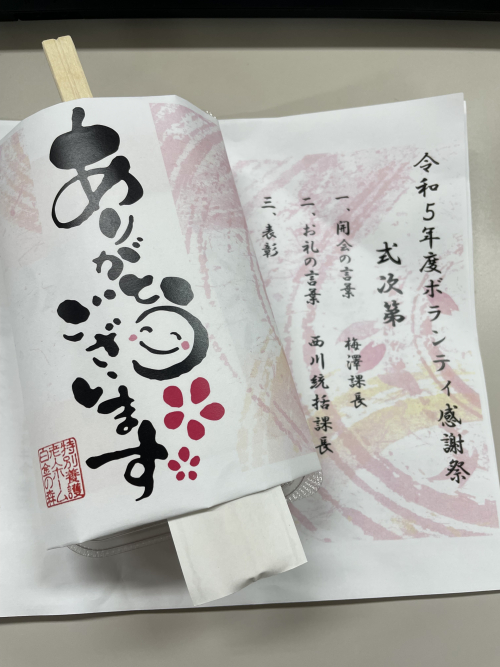 ありがとう
ございます
特別養護
老人ホーム
白金の森
令和5年度ボランティ感謝祭
式次第
一、開会の言葉 梅澤課長
二、お礼の言葉 西川統括課長
三、表彰